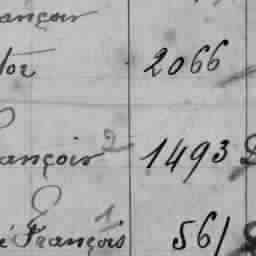 ançois
tor 2066
ançois 2 1493
é François 1 561